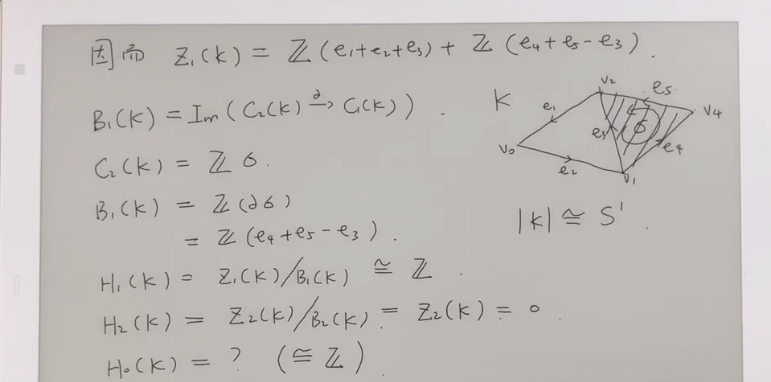 因而 Z₁(K) = ℤ(e₁+e₂+e₃) + ℤ(e₄+e₅-e₃).
B₁(K) = Im(C₂(K) →∂ C₁(K)).
C₂(K) = ℤ6.
B₁(K) = ℤ(∂6)
= ℤ(e₄+e₅-e₃).
H₁(K) = Z₁(K)/B₁(K) ≅ ℤ.
H₂(K) = Z₂(K)/B₂(K) = Z₂(K) = 0
H₀(K) = ? (≅ ℤ)
K
v₂
e₅
e₁
v₄
e₃
6
e₄
v₀
e₂
v₁
|K| ≅ S¹.